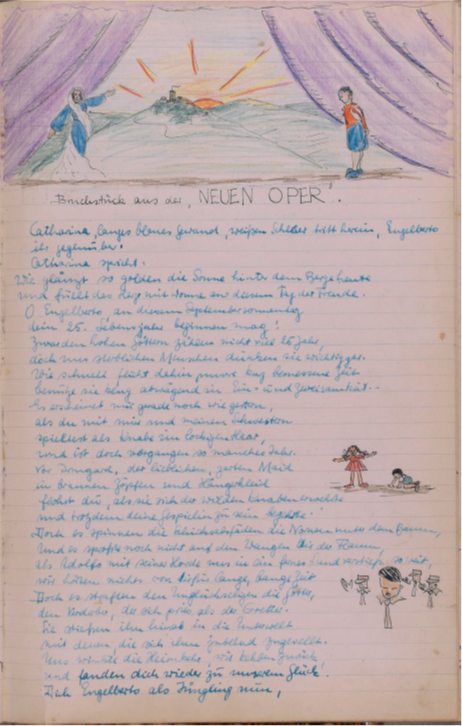 Bruchstück aus der „NEUEN OPER".
Catharina, langes blaues Gewand, weißen Schleier tritt herein, Engelberto
ihr gegenüber.
Catharina spricht:
Wie glänzt so golden die Sonne hinter dem Berge heute
und füllt das Herz mit Wonne an diesem Tag der Freude.
O Engelberto, an diesem Septembersonnentag
dein 25. Lebensjahr beginnen mag!
Zwar den hohen Göttern zählen nicht viel 25 Jahr,
doch uns sterblichen Menschen dünken sie wichtig gar.
Wie schnell flieht dahin unsre karg bemessene Zeit
benütze sie klug abwägend in Ein- und Zweisamkeit.-
Es scheinet mir gerade noch wie gestern,
als du mit mir und meinen Schwestern
spieltest als Knabe im lockigen Haar,
und ist doch vergangen so manches Jahr.
Vor Irmgard, der lieblichen, zarten Maid
in braunen Zöpfen und Hängekleid
flohst du, als sie sich der wilden Knaben erwehrte
und trotzdem deine Gespielin zu sein begehrte.
Doch es spinnen die Schicksalsfäden die Nornen unter dem Baum,
Und es sproßte noch nicht auf den Wangen dir der Flaum,
als Adolfo mit seiner Horde uns in ein fernes Land so weit,
wir hörten nichts von dir lange, lange Zeit
Doch es straften den Unglückseligen die Götter,
den , der sich pries als der Retter.
Sie stießen ihn hinab in die Unterwelt
mit denen die sich ihm jubelnd zugesellt.
Uns wurde die Heimkehr, wir kehrten zurück
und fanden dich wieder zu unserem Glück!
Dich Engelberto als Jüngling nun,